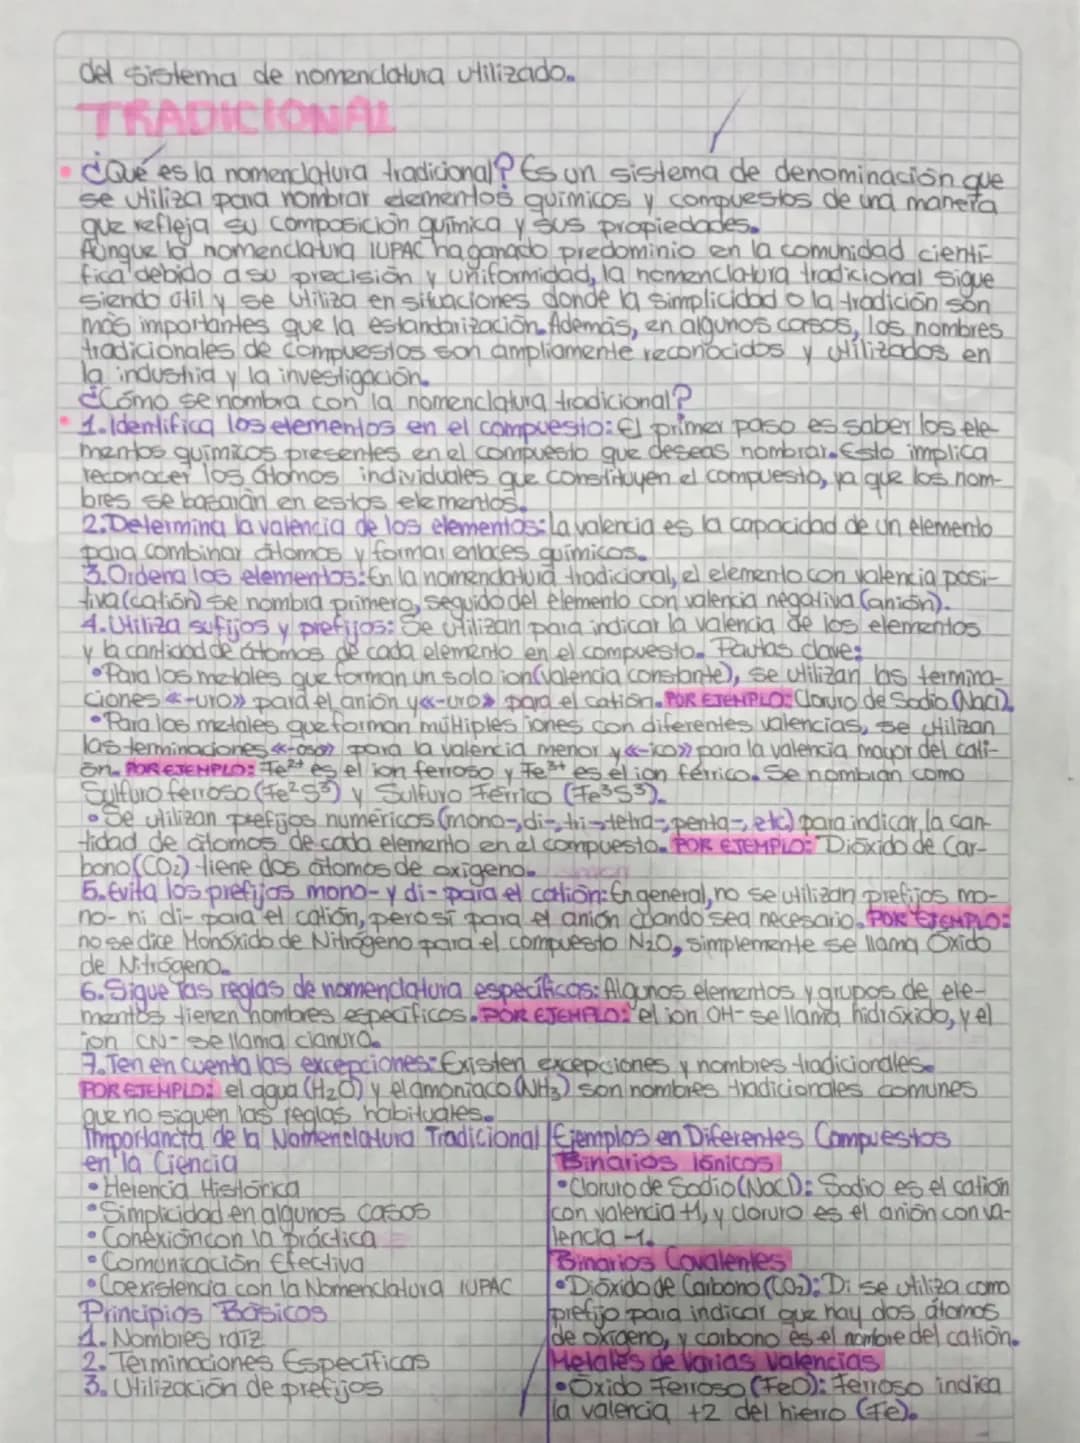 del sistema de nomenclatura utilizado.
TRADICIONAL
• ¿Qué es la nomenclatura tradicional? Es un sistema de denominación que
se utiliza para nombrar elementos químicos y compuestos de una manera
que refleja su composición química y sus propiedades.
Aunque la nomenclatura IUPAC ha ganado predominio en la comunidad cientí-
fica debido a su precisión y uniformidad, la nomenclatura tradicional sigue
siendo útil y se utiliza en situaciones donde la simplicidad o la tradición son
más importantes que la estandarización. Además, en algunos casos, los nombres
tradicionales de compuestos son ampliamente reconocidos y utilizados en
la industria y la investigación.
¿Cómo se nombra con la nomenclatura tradicional?
• 1. Identifica los elementos en el compuesto: El primer paso es saber los ele-
mentos químicos presentes en el compuesto que deseas nombrar. Esto implica
reconocer los átomos individuales que constituyen el compuesto, ya que los nom-
bres se basarán en estos elementos.
2. Determina la valencia de los elementos: la valencia es la capacidad de un elemento
para combinar átomos y formar enlaces químicos.
3. Ordena los elementos: En la nomenclatura tradicional, el elemento con valencia posi-
tiva (catión) se nombra primero, seguido del elemento con valencia negativa (anión).
4. Utiliza sufijos y prefijos: Se utilizan para indicar la valencia de los elementos
y la cantidad de átomos de cada elemento en el compuesto. Pautas clave:
• Para los metales que forman un solo ion (valencia constante), se utilizan las termina-
ciones «-uro» para el anión y «-uro» para el catión. POR EJEMPLO: Cloruro de Sodio (NaCl).
• Para los metales que forman múltiples iones con diferentes valencias, se utilizan
las terminaciones «-oso» para la valencia menor y «-ico» para la valencia mayor del cati-
ón. POR EJEMPLO: Fe²⁺ es el ion ferroso y Fe³⁺ es el ion férrico. Se nombran como
Sulfuro ferroso (Fe²S³) y Sulfuro Férrico (Fe³S³).
• Se utilizan prefijos numéricos (mono-, di-, tri-, tetra-, penta-, etc) para indicar la can-
tidad de átomos de cada elemento en el compuesto. POR EJEMPLO: Dióxido de Car-
bono (CO₂) tiene dos átomos de oxígeno.
5. Evita los prefijos mono- y di- para el catión: En general, no se utilizan prefijos mo-
no- ni di- para el catión, pero sí para el anión cuando sea necesario. POR EJEMPLO:
no se dice Monóxido de Nitrógeno para el compuesto N₂O, simplemente se llama Óxido
de Nitrógeno.
6. Sigue las reglas de nomenclatura específicas: Algunos elementos y grupos de ele-
mentos tienen nombres específicos. POR EJEMPLO: el ion OH- se llama hidróxido, y el
ion CN- se llama cianuro.
7. Ten en cuenta las excepciones: Existen excepciones y nombres tradicionales.
POR EJEMPLO: el agua (H₂O) y el amoniaco (NH₃) son nombres tradicionales comunes
que no siguen las reglas habituales.
Importancia de la Nomenclatura Tradicional
en la Ciencia
• Herencia Histórica
• Simplicidad en algunos casos
• Conexión con la práctica
• Comunicación Efectiva
• Coexistencia con la Nomenclatura IUPAC
Principios Básicos
1. Nombres raíz
2. Terminaciones Específicas
3. Utilización de prefijos
Ejemplos en Diferentes Compuestos
Binarios Iónicos
• Cloruro de Sodio (NaCl): Sodio es el catión
con valencia +1, y cloruro es el anión con va-
lencia -1.
Binarios Covalentes
• Dióxido de Carbono (CO₂): Di se utiliza como
prefijo para indicar que hay dos átomos
de oxígeno, y carbono es el nombre del catión.
Metales de Varias Valencias
• Óxido Ferroso (FeO): Ferroso indica
la valencia +2 del hierro (Fe).